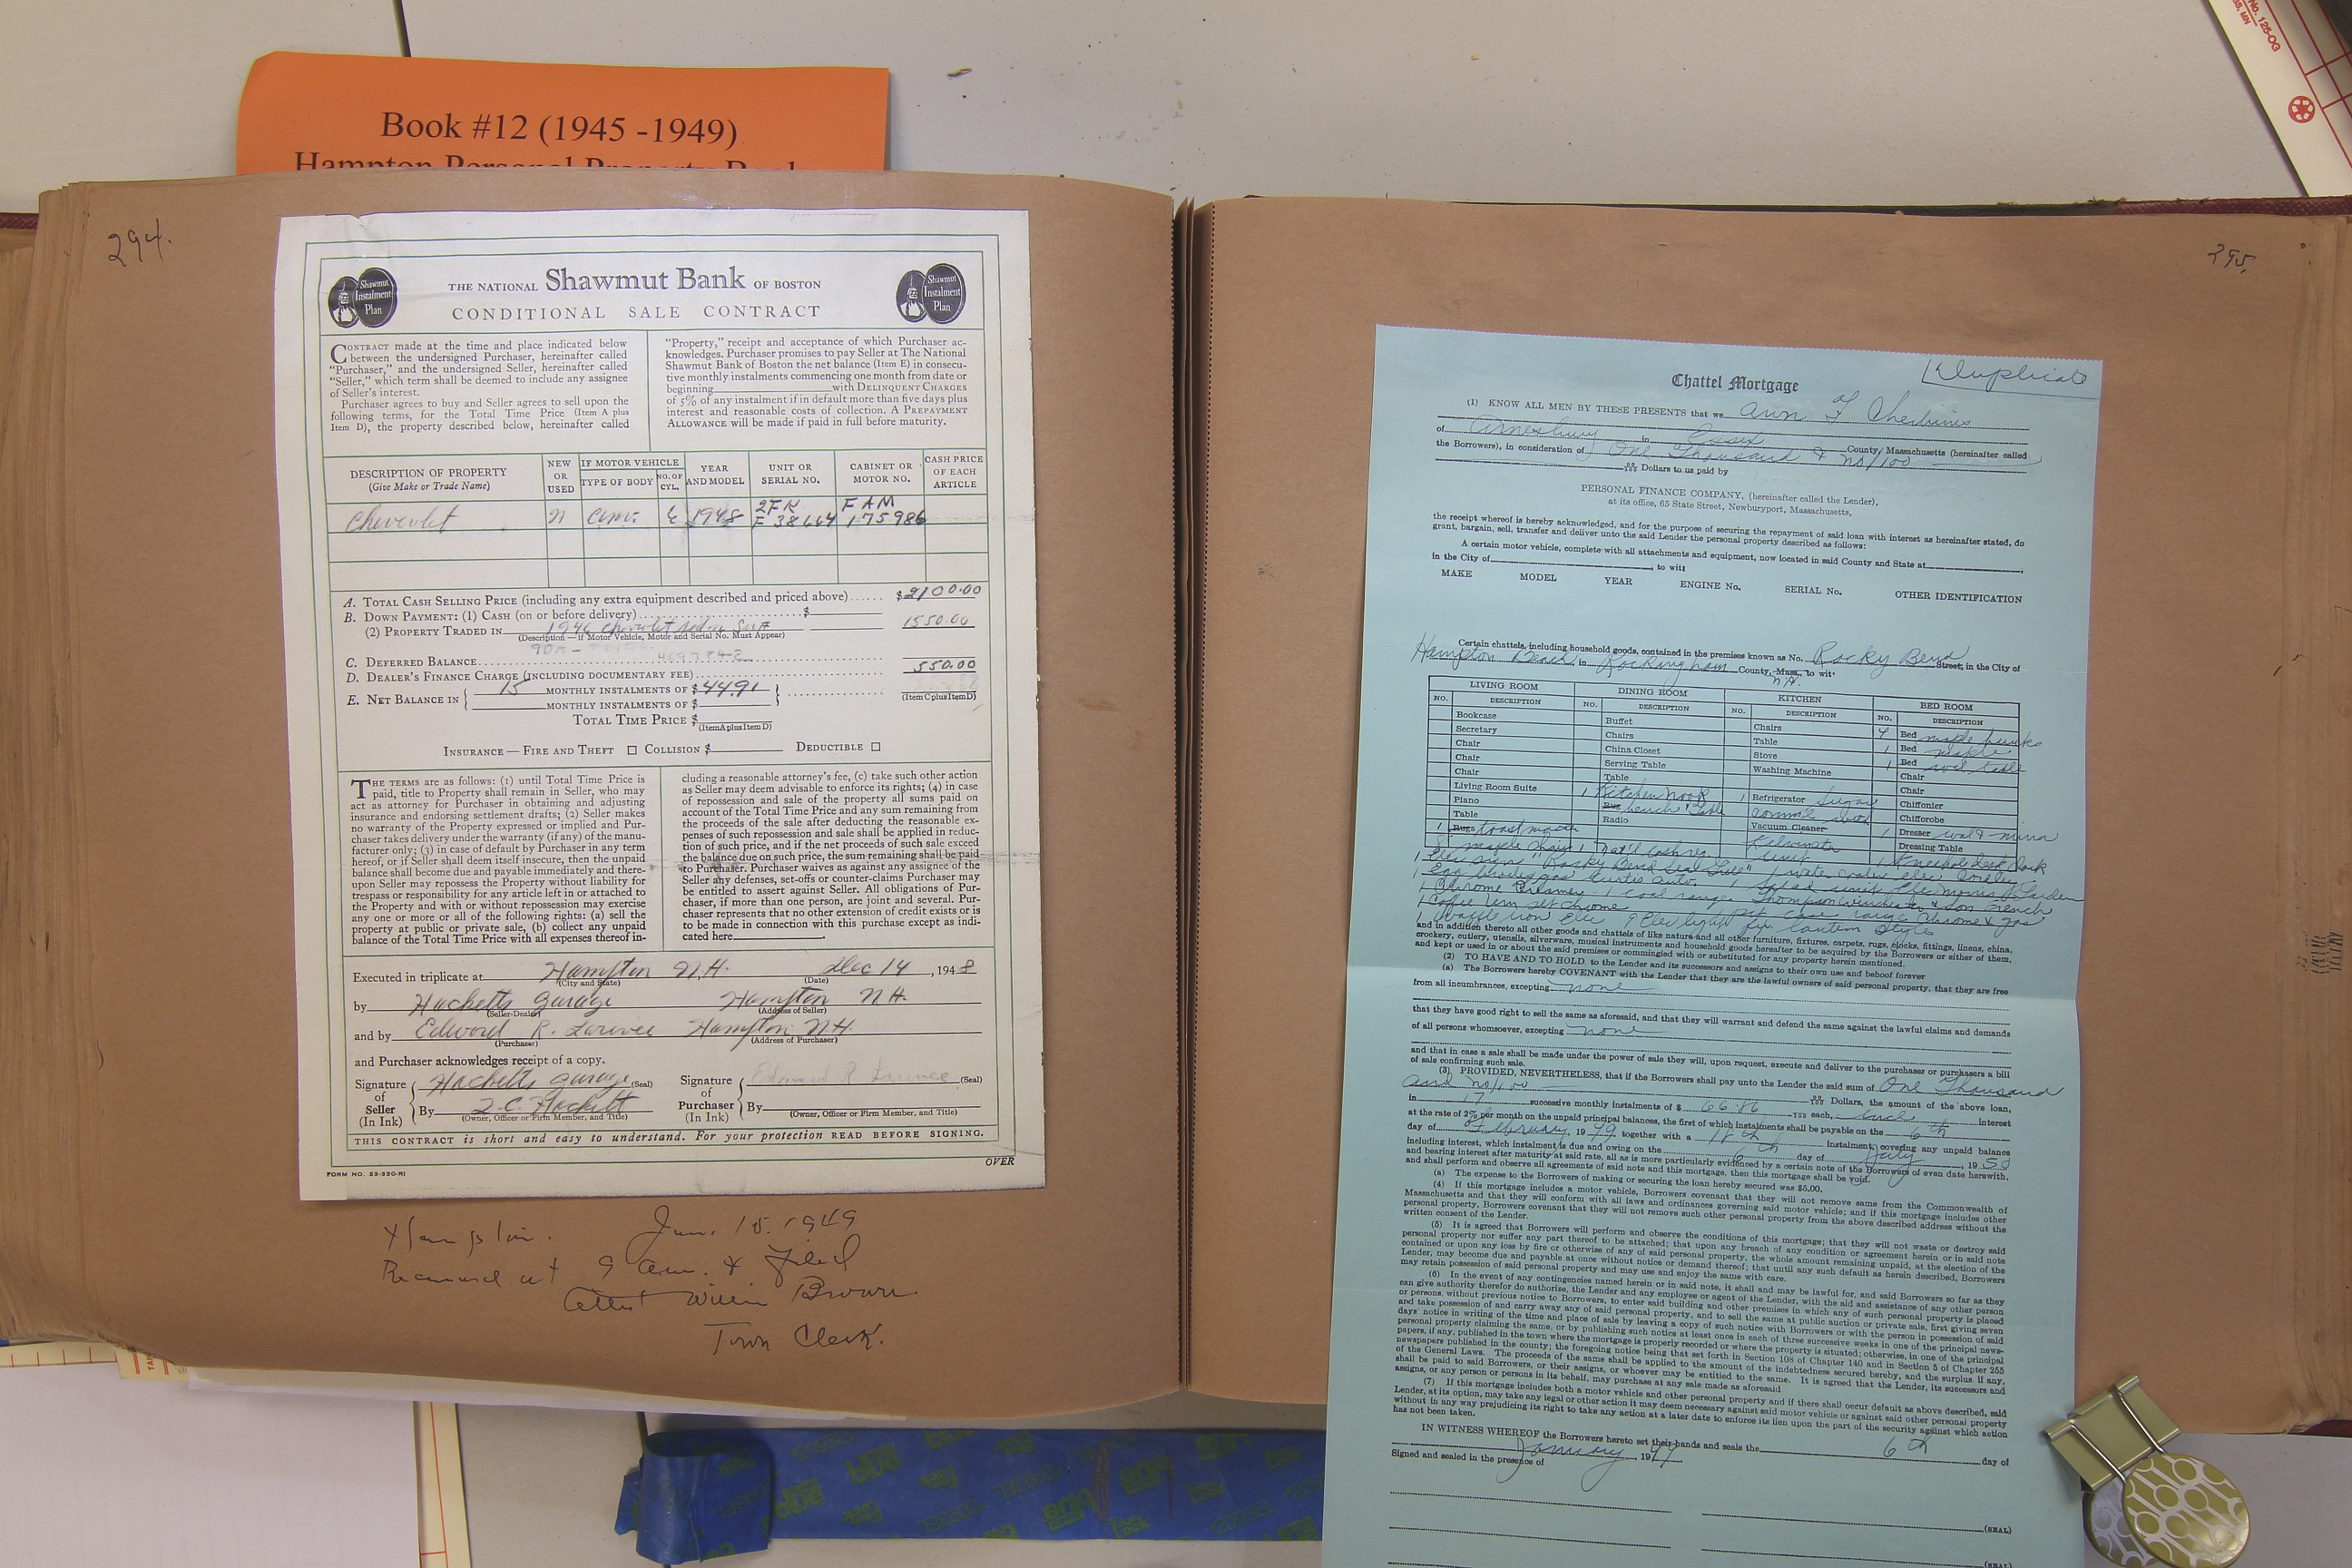 Book #12 (1945 -1949)
Hampton Personal Property Book
294.
THE NATIONAL Shawmut Bank OF BOSTON
CONDITIONAL SALE CONTRACT
Shawmut Instalment Plan
Shawmut Instalment Plan
CONTRACT made at the time and place indicated below
between the undersigned Purchaser, hereinafter called
"Purchaser," and the undersigned Seller, hereinafter called
"Seller," which term shall be deemed to include any assignee
of Seller's interest.
Purchaser agrees to buy and Seller agrees to sell upon the
following terms, for the Total Time Price (Item A plus
Item D), the property described below, hereinafter called
"Property," receipt and acceptance of which Purchaser ac-
knowledges. Purchaser promises to pay Seller at The National
Shawmut Bank of Boston the net balance (Item E) in consecu-
tive monthly instalments commencing one month from date or
beginning with DELINQUENT CHARGES
of 5% of any instalment if in default more than five days plus
interest and reasonable costs of collection. A PREPAYMENT
ALLOWANCE will be made if paid in full before maturity.
DESCRIPTION OF PROPERTY (Give Make or Trade Name) NEW OR USED IF MOTOR VEHICLE TYPE OF BODY NO. OF CYL. YEAR AND MODEL UNIT OR SERIAL NO. CABINET OR MOTOR NO. CASH PRICE OF EACH ARTICLE
Chevrolet n 6 1948 2FK F AM 175986
A. TOTAL CASH SELLING PRICE (including any extra equipment described and priced above) ...... $2100.00
B. DOWN PAYMENT: (1) CASH (on or before delivery) ...... $
(2) PROPERTY TRADED IN 1946 Chevrolet 1550.00
(Description—If Motor Vehicle, Motor and Serial No. Must Appear)
C. DEFERRED BALANCE ...... 550.00
D. DEALER'S FINANCE CHARGE (INCLUDING DOCUMENTARY FEE) ......
E. NET BALANCE IN { 15 MONTHLY INSTALMENTS OF $44.91 } ...... (Item C plus Item D)
MONTHLY INSTALMENTS OF $
TOTAL TIME PRICE $
(Item A plus Item D)
INSURANCE — FIRE AND THEFT □ COLLISION $ DEDUCTIBLE □
THE TERMS are as follows: (1) until Total Time Price is
paid, title to Property shall remain in Seller, who may
act as attorney for Purchaser in obtaining and adjusting
insurance and endorsing settlement drafts; (2) Seller makes
no warranty of the Property expressed or implied and Pur-
chaser takes delivery under the warranty (if any) of the manu-
facturer only; (3) in case of default by Purchaser in any term
hereof, or if Seller shall deem itself insecure, then the unpaid
balance shall become due and payable immediately and there-
upon Seller may repossess the Property without liability for
trespass or responsibility for any article left in or attached to
the Property and with or without repossession may exercise
any one or more or all of the following rights: (a) sell the
property at public or private sale, (b) collect any unpaid
balance of the Total Time Price with all expenses thereof in-
cluding a reasonable attorney's fee, (c) take such other action
as Seller may deem advisable to enforce its rights; (4) in case
of repossession and sale of the property all sums paid on
account of the Total Time Price and any sum remaining from
the proceeds of the sale after deducting the reasonable ex-
penses of such repossession and sale shall be applied in reduc-
tion of such price, and if the net proceeds of such sale exceed
the balance due on such price, the sum remaining shall be paid
to Purchaser. Purchaser waives as against any assignee of the
Seller any defenses, set-offs or counter-claims Purchaser may
be entitled to assert against Seller. All obligations of Pur-
chaser, if more than one person, are joint and several. Pur-
chaser represents that no other extension of credit exists or is
to be made in connection with this purchase except as indi-
cated here
Executed in triplicate at Hampton N.H. Dec 14, 1948
(City and State) (Date)
by Hacketts Garage Hampton N.H.
(Seller-Dealer) (Address of Seller)
and by Edward R. Larivee Hampton N.H.
(Purchaser) (Address of Purchaser)
and Purchaser acknowledges receipt of a copy.
Signature of Seller (In Ink) { Hacketts Garage (Seal)
By Hackett
(Owner, Officer or Firm Member, and Title)
Signature of Purchaser (In Ink) { Edward R Larivee (Seal)
By
(Owner, Officer or Firm Member, and Title)
THIS CONTRACT is short and easy to understand. For your protection READ BEFORE SIGNING.
FORM NO. 33-330-RI
OVER
Hampton. Jan. 15. 1949
Received at 9 am. & Filed
Attest William Brown
Town Clerk.
295.
Duplicate
Chattel Mortgage
(1) KNOW ALL MEN BY THESE PRESENTS that we Ann F
of Amesbury in Essex County, Massachusetts (hereinafter called
the Borrowers), in consideration of One Thousand & no/100
Dollars to us paid by
PERSONAL FINANCE COMPANY, (hereinafter called the Lender),
at its office, 65 State Street, Newburyport, Massachusetts,
the receipt whereof is hereby acknowledged, and for the purpose of securing the repayment of said loan with interest as hereinafter stated, do
grant, bargain, sell, transfer and deliver unto the said Lender the personal property described as follows:
A certain motor vehicle, complete with all attachments and equipment, now located in said County and State at
in the City of , to wit:
MAKE MODEL YEAR ENGINE No. SERIAL No. OTHER IDENTIFICATION
Certain chattels, including household goods, contained in the premises known as No. Rocky Bend Street, in the City of
Hampton Beach in Rockingham County, Mass., to wit:
N.H.
LIVING ROOM DINING ROOM KITCHEN BED ROOM
NO. DESCRIPTION NO. DESCRIPTION NO. DESCRIPTION NO. DESCRIPTION
Bookcase Buffet Chairs 4 Bed maple bunks
Secretary Chairs Table 1 Bed maple
Chair China Closet Stove 1 Bed
Chair Serving Table Washing Machine Chair
Chair Table Chair
Living Room Suite 1 Kitchen nook 1 Refrigerator Chiffonier
Piano Rug bench & table Chifforobe
Table Radio Vacuum Cleaner 1 Dresser
1 Rugs toastmaster Kelvinator Dressing Table
maple chairs 1 Nat'l Cash reg unit 1 Kneehole desk
1 Elec sign "Rocky Bend Sea Grill" 1 water cooler elec
1 Chrome 1 coal range
1 Coffee Urn set chrome
1 Waffle iron Elec Elec light lantern style
and in addition thereto all other goods and chattels of like nature and all other furniture, fixtures, carpets, rugs, clocks, fittings, linens, china,
crockery, cutlery, utensils, silverware, musical instruments and household goods hereafter to be acquired by the Borrowers or either of them,
and kept or used in or about the said premises or commingled with or substituted for any property herein mentioned.
(2) TO HAVE AND TO HOLD, to the Lender and its successors and assigns to their own use and behoof forever
(a) The Borrowers hereby COVENANT with the Lender that they are the lawful owners of said personal property, that they are free
from all incumbrances, excepting none
that they have good right to sell the same as aforesaid, and that they will warrant and defend the same against the lawful claims and demands
of all persons whomsoever, excepting none
and that in case a sale shall be made under the power of sale they will, upon request, execute and deliver to the purchaser or purchasers a bill
of sale confirming such sale.
(3) PROVIDED, NEVERTHELESS, that if the Borrowers shall pay unto the Lender the said sum of One Thousand
and no/100 Dollars, the amount of the above loan,
in 17 successive monthly instalments of $ 66.86 each, incl. interest
at the rate of 2% per month on the unpaid principal balances, the first of which instalments shall be payable on the 6th
day of February, 1949, together with a 18th instalment, covering any unpaid balance
including interest, which instalment is due and owing on the 6th day of July, 1950
and bearing interest after maturity at said rate, all as is more particularly evidenced by a certain note of the Borrowers of even date herewith,
and shall perform and observe all agreements of said note and this mortgage, then this mortgage shall be void.
(a) The expense to the Borrowers of making or securing the loan hereby secured was $5.00.
(4) If this mortgage includes a motor vehicle, Borrowers covenant that they will not remove same from the Commonwealth of
Massachusetts and that they will conform with all laws and ordinances governing said motor vehicle; and if this mortgage includes other
personal property, Borrowers covenant that they will not remove such other personal property from the above described address without the
written consent of the Lender.
(5) It is agreed that Borrowers will perform and observe the conditions of this mortgage; that they will not waste or destroy said
personal property nor suffer any part thereof to be attached; that upon any breach of any condition or agreement herein or in said note
contained or upon any loss by fire or otherwise of any of said personal property, the whole amount remaining unpaid, at the election of the
Lender, may become due and payable at once without notice or demand thereof; that until any such default as herein described, Borrowers
may retain possession of said personal property and may use and enjoy the same with care.
(6) In the event of any contingencies named herein or in said note, it shall and may be lawful for, and said Borrowers so far as they
can give authority therefor do authorize, the Lender and any employee or agent of the Lender, with the aid and assistance of any other person
or persons, without previous notice to Borrowers, to enter said building and other premises in which any of such personal property is placed
and take possession of and carry away any of said personal property, and to sell the same at public auction or private sale, first giving seven
days' notice in writing of the time and place of sale by leaving a copy of such notice with Borrowers or with the person in possession of said
personal property claiming the same, or by publishing such notice at least once in each of three successive weeks in one of the principal news-
papers, if any, published in the town where the mortgage is properly recorded or where the property is situated; otherwise, in one of the principal
newspapers published in the county; the foregoing notice being that set forth in Section 108 of Chapter 140 and in Section 5 of Chapter 255
of the General Laws. The proceeds of the same shall be applied to the amount of the indebtedness secured hereby, and the surplus if any,
shall be paid to said Borrowers, or their assigns, or whoever may be entitled to the same. It is agreed that the Lender, its successors and
assigns, or any person or persons in its behalf, may purchase at any sale made as aforesaid
(7) If this mortgage includes both a motor vehicle and other personal property and if there shall occur default as above described, said
Lender, at its option, may take any legal or other action it may deem necessary against said motor vehicle or against said other personal property
without in any way prejudicing its right to take any action at a later date to enforce its lien upon the part of the security against which action
has not been taken.
IN WITNESS WHEREOF the Borrowers hereto set their hands and seals the 6th day of
January, 1949.
Signed and sealed in the presence of
(SEAL)
(SEAL)
No. 125-OG